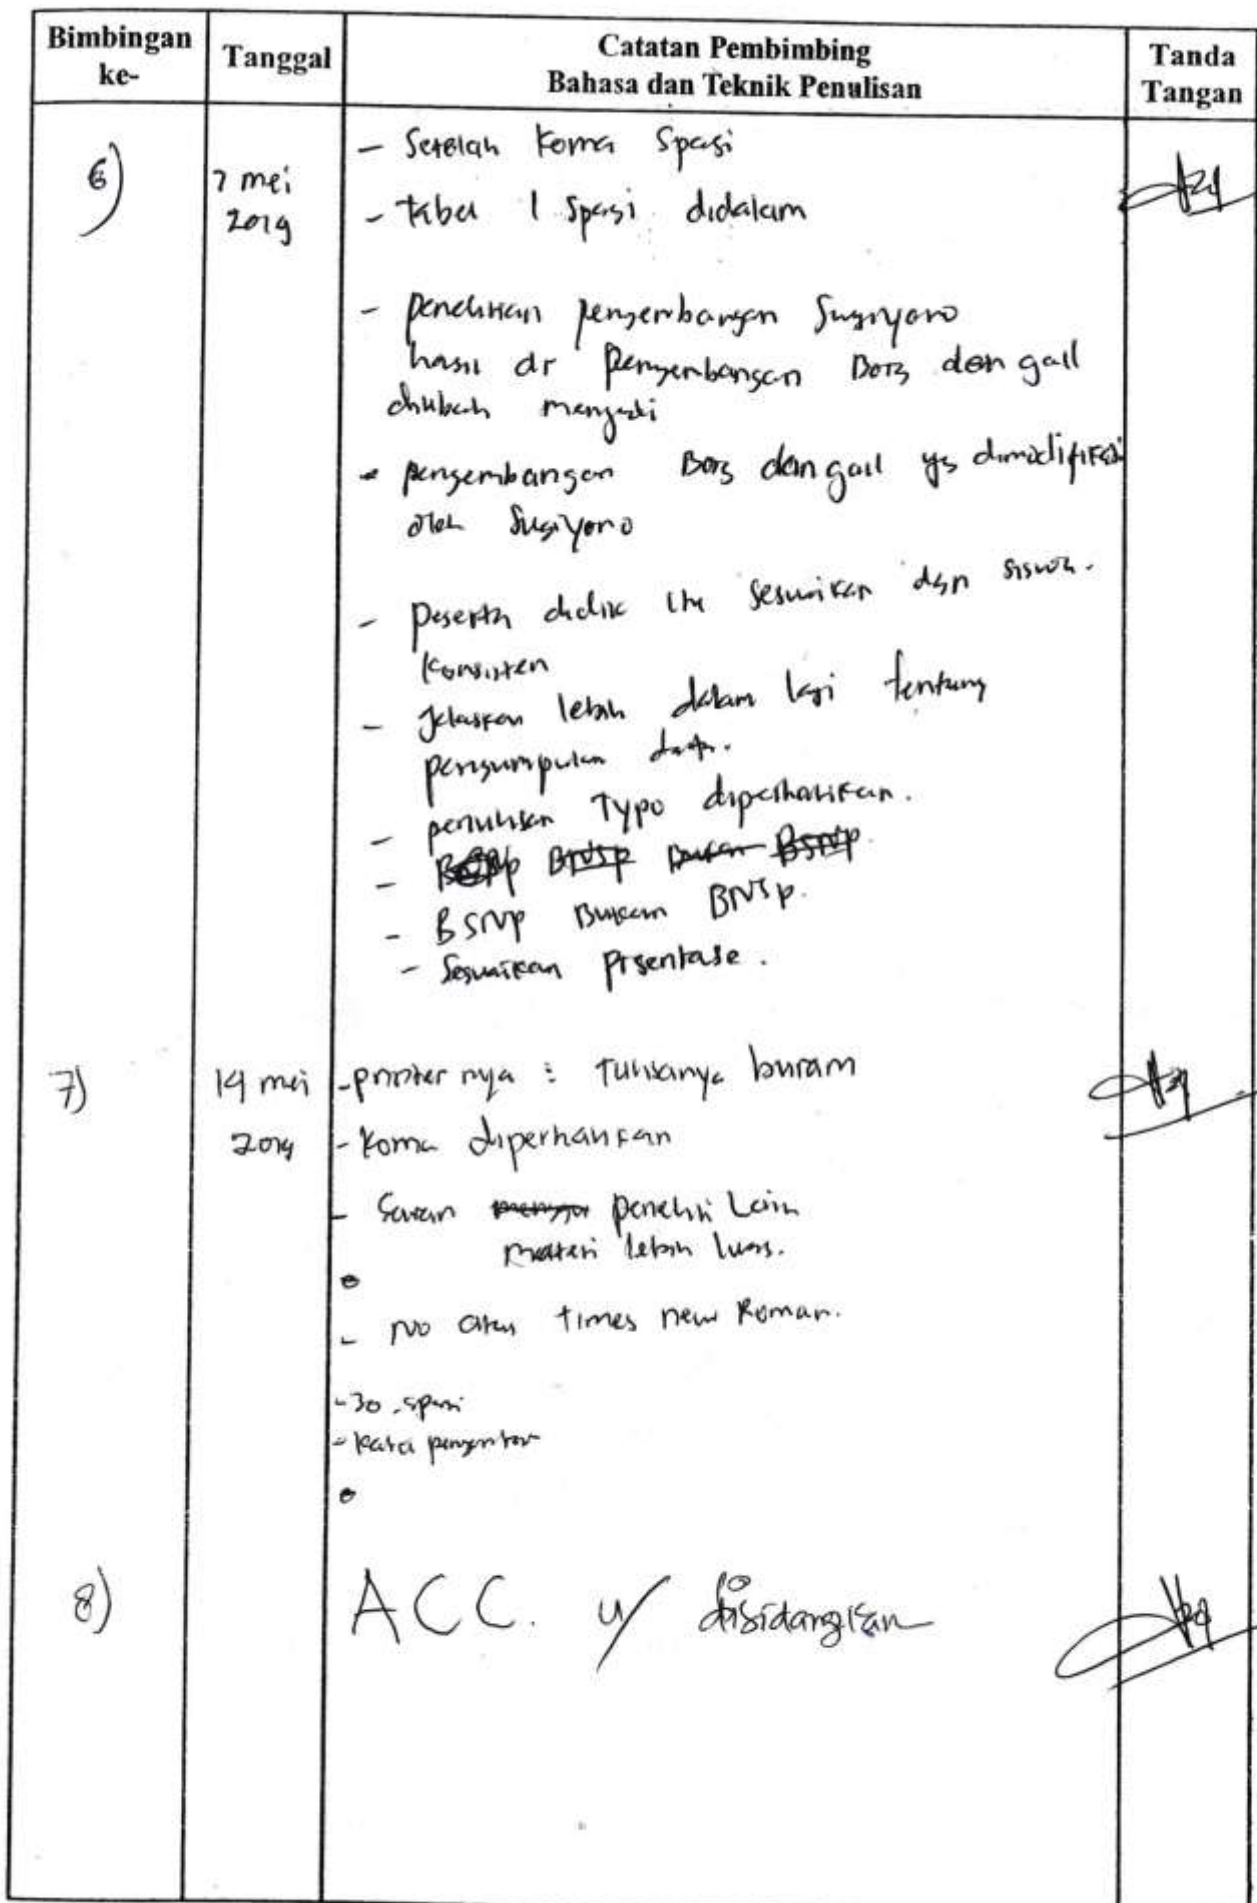 Bimbingan ke- Tanggal Catatan Pembimbing Bahasa dan Teknik Penulisan Tanda Tangan
6) 7 mei 2019
- Setelah Koma Spasi
- tabel 1 Spasi didalam
- penelitian pengembangan Sugiyono
hasil dr pengembangan Borg dan gall
diubah menjadi
- pengembangan Borg dan gall yg dimodifikasi
oleh Sugiyono
- peserta didik itu sesuaikan dgn siswa.
Konsisten
- Jelaskan lebih dalam lagi tentang
pengumpulan data.
- penulisan Typo diperhatikan.
- BNSP Bukan BSNP.
- BSNP Bukan BNSP.
- Sesuaikan prsentase.
7) 14 mei 2019
- printer nya : tulisanya buram
- Koma diperhatikan
- Saran peneliti Lain
materi lebih luas.
- No atas times new Roman.
- 30 . spasi
- kata pengantar
8) ACC. u/ disidangkan